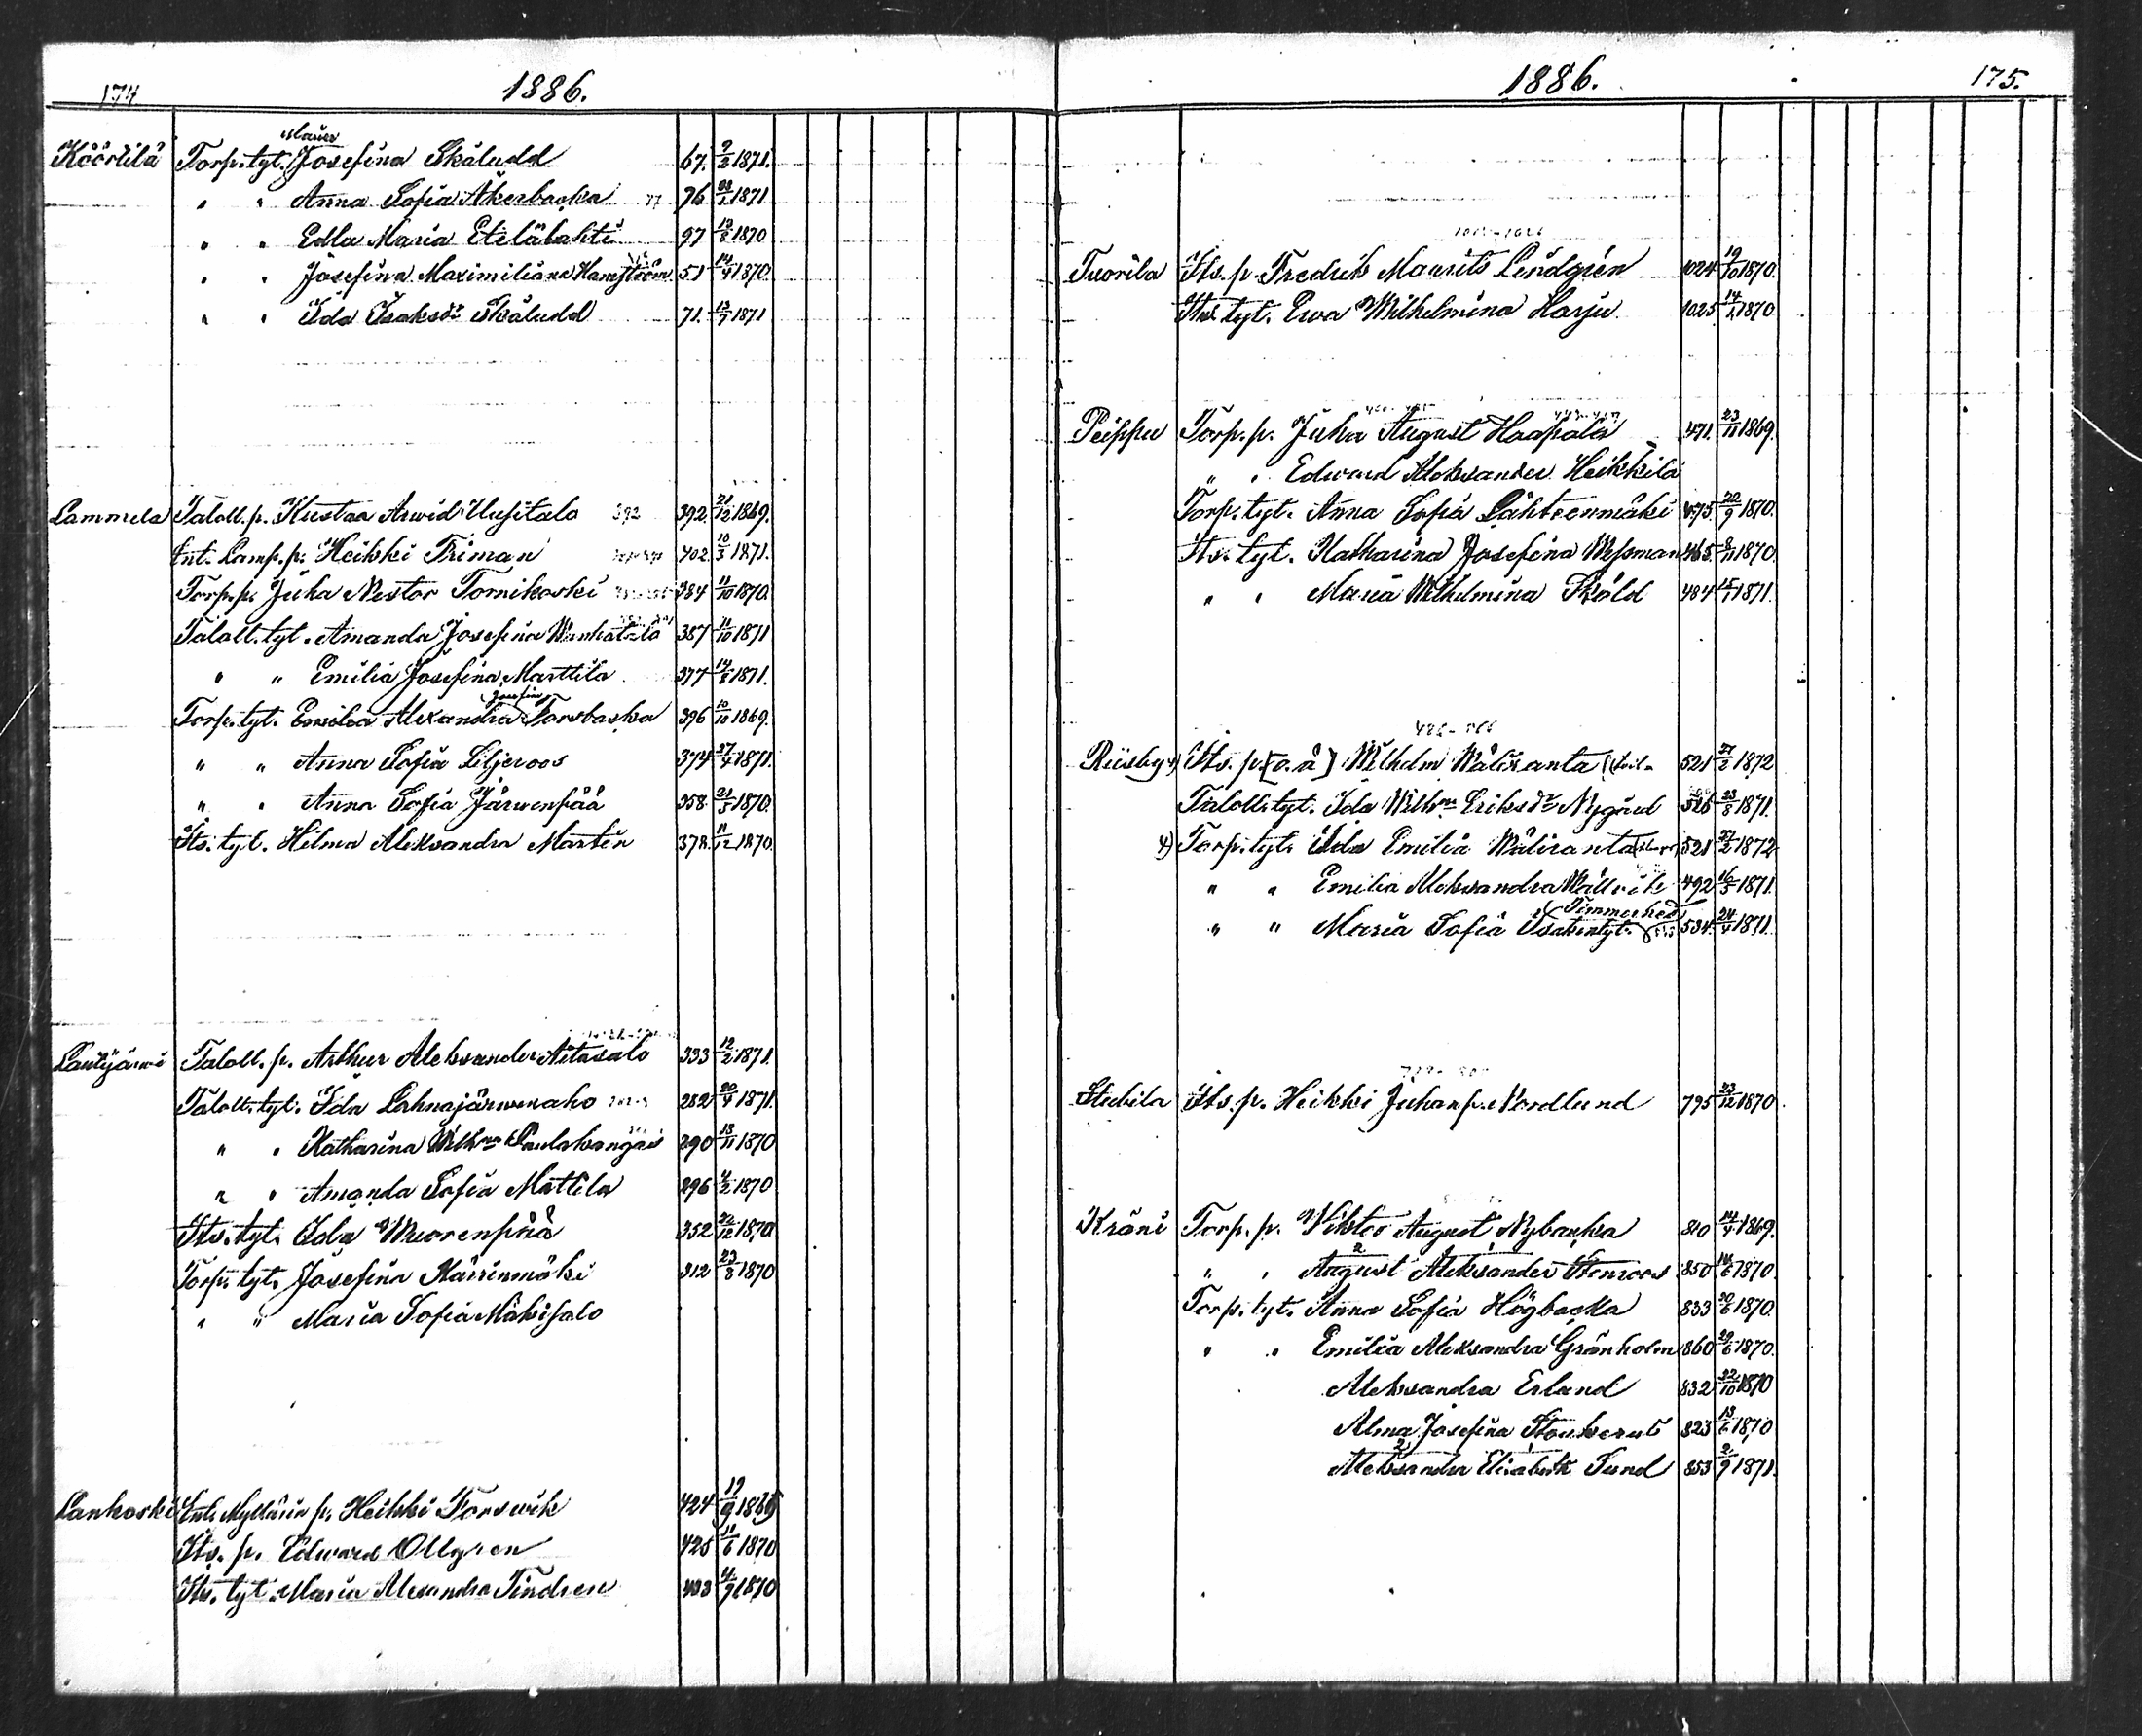 174 1886.
Maria
Köörtilä Torp. tyt. Josefina Skäludd 67. 9/2 1871.
" " Anna Sofia Åkerbacka 77 76 1871
" " Edla Maria Etelälahti 97 1870
" " Josefina Maximiliana Hamström 51 14/4 1870.
" " Ida Isaksdr Skäludd 71. 1871
Lammela Taloll. p. Kustaa Arwid Uusitalo 392 392. 21/12 1869.
Ent. Lamp. p. Heikki Friman 402. 10/3 1871.
Torp. p. Juha Nestor Tornikoski 384 11/10 1870.
Taloll. tyt. Amanda Josefina Wanhatalo 387 11/10 1871
" " Emilia Josefina Marttila 377 1871.
Josefina
Torp. tyt. Emilia Alexandra Forsbacka 396 10/10 1869.
" " Anna Sofia Liljeroos 374 27/4 1871.
" " Anna Sofia Järwenpää 358. 21/5 1870.
Its. tyt. Hilma Aleksandra Martin 378. 11/12 1870.
Lautjärwi Taloll. p. Arthur Aleksander Aitasalo 333 12/2 1871.
Taloll. tyt. Ida Lahnajärwenaho 282 20/4 1871.
" " Katharina Wilhna Paulakangas 290 13/11 1870
" " Amanda Sofia Mattila 296 4/2 1870
Its. tyt. Ida Wuorenpää 352 1870
Torp. tyt. Josefina Kärrinmäki 312 23/8 1870
" " Maria Sofia Mäkisalo
Lankoski Ent. Myllärin p. Heikki Forswik 424 19/9 1869
Its. p. Edward Ollgren 425 11/6 1870
Its. tyt. Maria Alexandra Tindren 433 4/9 1870
1886. 175.
Tuorila Its. p. Fredrik Maurits Lindgrén 1024 19/10 1870.
Its. tyt. Ewa Wilhelmina Harju 1025. 14/1 1870
Peippu Torp. p. Juha August Haapala 471. 23/11 1869.
" " Edward Aleksander Heikkilä
Torp. tyt. Anna Sofia Lähteenmäki 475. 20/9 1870.
Its. tyt. Katharina Josefina Wessman 465. 8/11 1870.
" " Maria Wilhelmina Sköld 484 15/1 1871.
Riisby Its. p. [o. ä] Wilhelm Wäliranta 521 27/2 1872
Taloll. tyt. Ida Wilhna Eriksdr Nygård 526 23/8 1871.
Torp. tyt. Ida Emilia Wäliranta 521 27/2 1872
" " Emilia Aleksandra Wällvik 492 16/3 1871.
Timmerhed
" " Maria Sofia Isakintyt. 534. 24/4 1871.
Stubila Its. p. Heikki Juhanp. Nordlund 795 23/12 1870.
Kräni Torp. p. Wiktor August Nybacka 810 14/4 1869.
2 1
" " August Aleksander Stenroos 850 14/6 1870.
Torp. tyt. Anna Sofia Högbacka 833 20/6 1870.
" " Emilia Aleksandra Grönholm 860 29/6 1870.
Aleksandra Erland 832 22/10 1870
Alma Josefina 823 13/6 1870
2 1
Aleksandra Elisabeth Sund 853 2/9 1871.